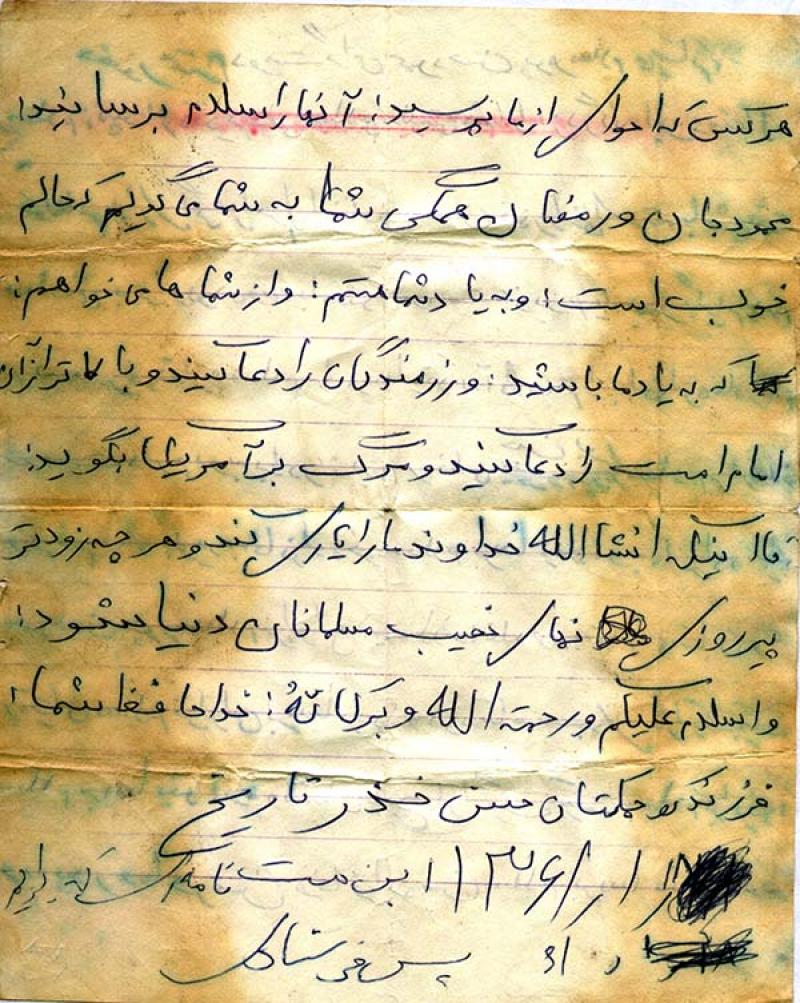 هر کس که احوالی از ما پرسید؛ آنها را سلام برسانید؛
محمود جان و رمضان همگی شما به شما می گویم که حالم
خوب است؛ و به یاد شما هستم؛ و از شما ها می خواهم؛
که به یاد ما باشید؛ و رزمندگان را دعا کنید و بالاتر از آن
امام امت را دعا کنید و مرگ بر آمریکا بگوید؛
تا اینکه انشاالله خداوند ما را یاری کند و هر چه زودتر
پیروزی نهای نصیب مسلمانان دنیا شود؛
واسلام علیکم ورحمته الله وبرکاتهُ؛ خداحافظ شما؛
فرزند کوچکتان حسن تاریخ
۱۳۶۶/۱/ این نامه ای که برایم
پس فرستاد